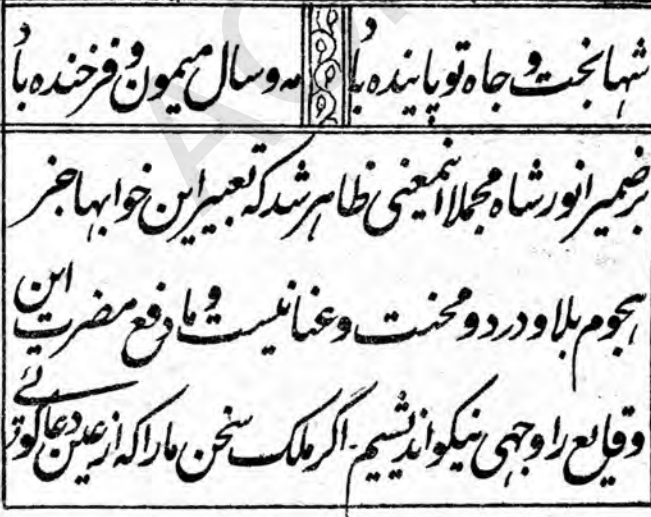 شها بخت و جاه تو پاینده باد مه و سال میمون و فرخنده باد
بر ضمیر انور شاه مجملا اینمعنی ظاهر شد که تعبیر این خوابها جز
هجوم بلا و درد و محنت و عنا نیست و ما دفع مضرت این
وقایع را وجهی نیکو اندیشیم۔ اگر ملک سخن ما را که از عین دعاگوئے